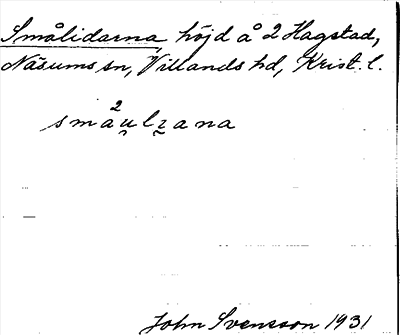 Smålidarna, höjd å 2 Hagstad,
Näsums sn, Villands hd, Krist. l.
2
småu̯lz̯ana
John Svensson 1931